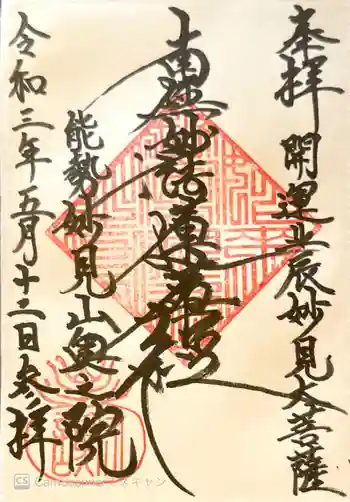 奉拝
開運北辰妙見大菩薩
南無妙法蓮華経
能勢妙見山奥之院
令和三年五月十二日参拝
CS CamScanner でスキャン